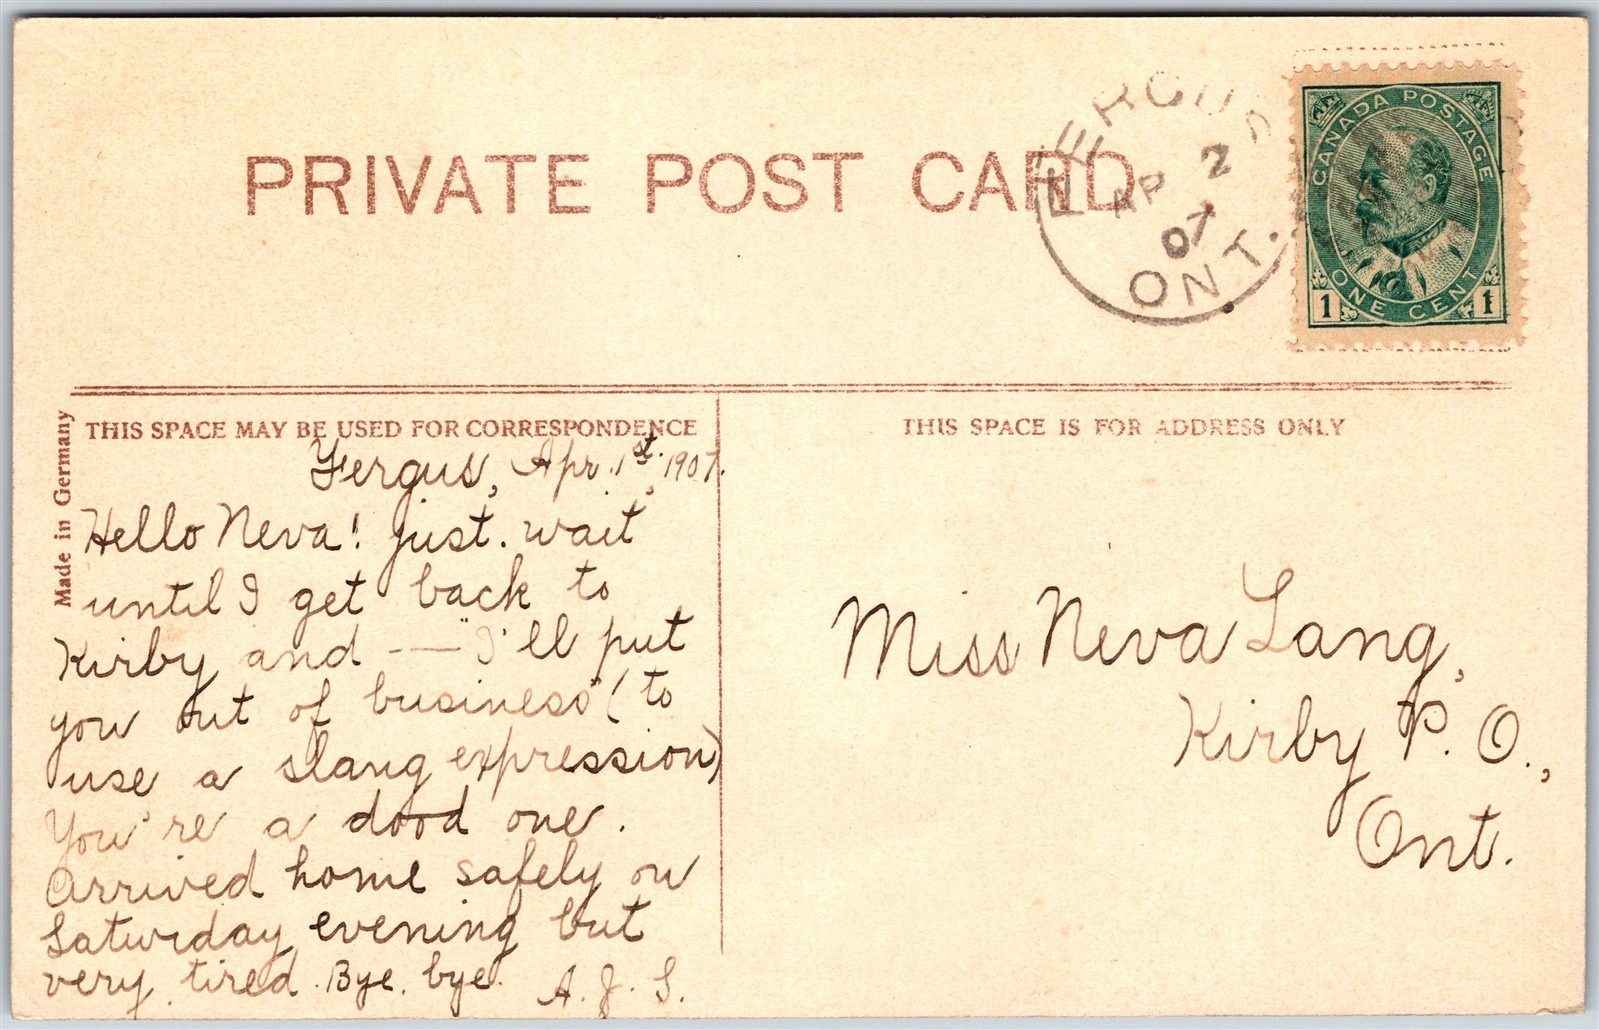 PRIVATE POST CARD
FERGUS
AP 2
07
ONT.
CANADA POSTAGE
ONE CENT
1 1
Made in Germany
THIS SPACE MAY BE USED FOR CORRESPONDENCE
THIS SPACE IS FOR ADDRESS ONLY
Fergus, Apr. 1st, 1907.
Hello Neva! just. wait
until I get back to
Kirby and - — "I'll put
you out of business" (to
use a slang expression)
You're a dood one.
Arrived home safely on
Saturday evening but
very tired. Bye. bye.
A. J. S.
Miss Neva Lang,
Kirby P. O.,
Ont.